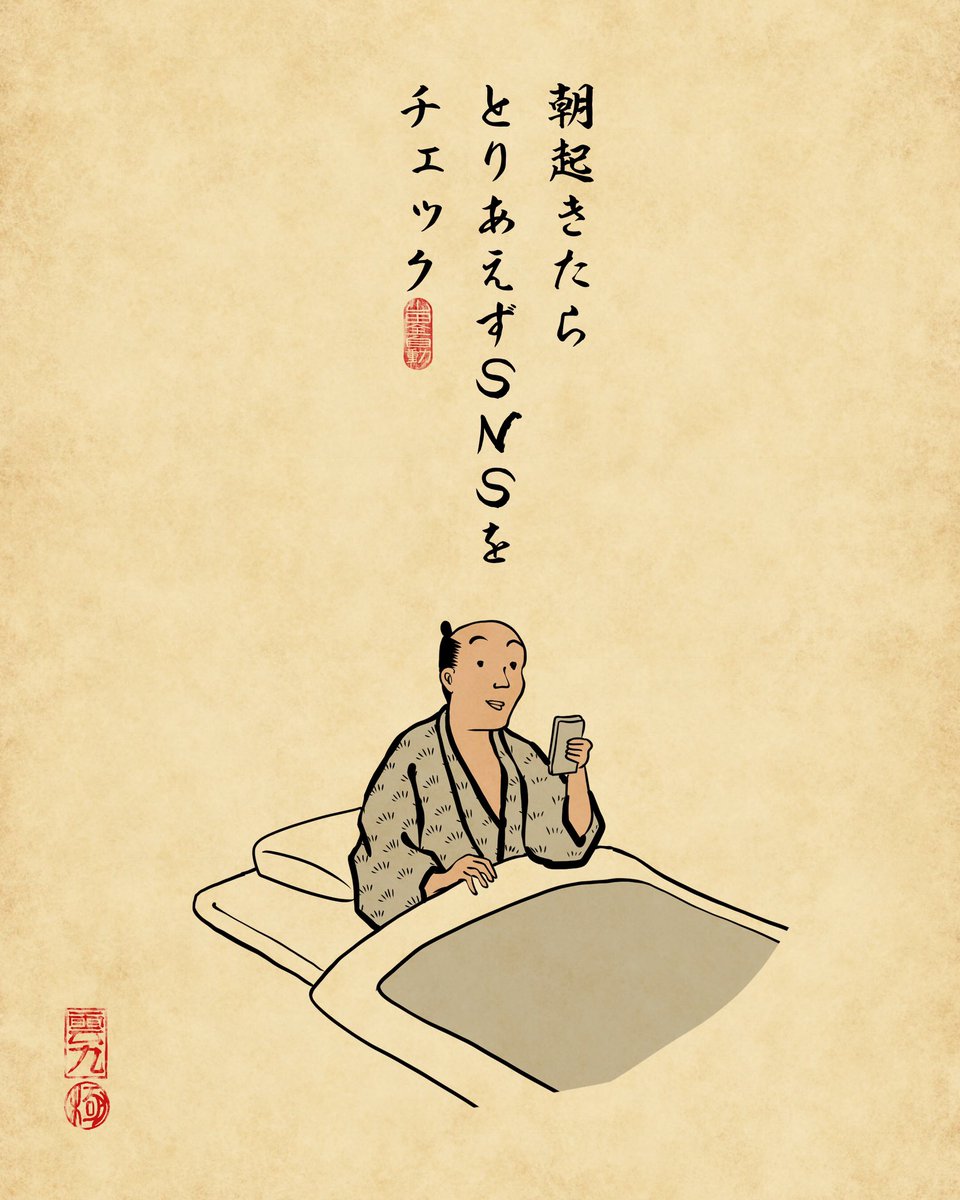 朝起きたら
とりあえずSNSを
チェック